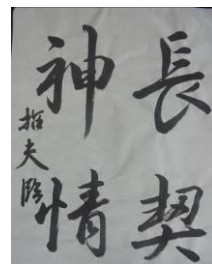 長契
神情
拓夫臨